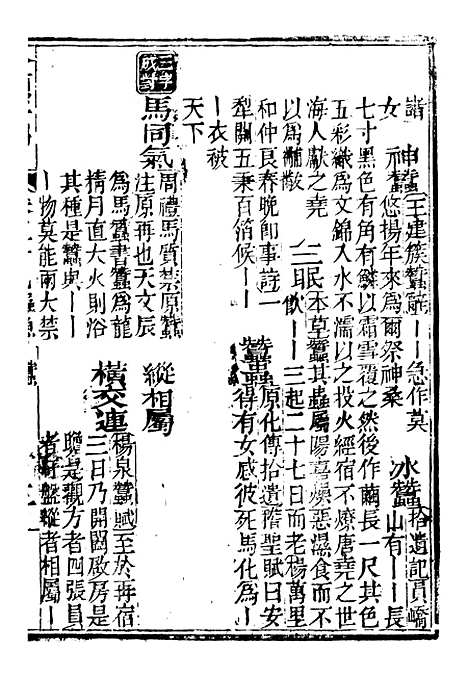 詣　神蠶王建簇蠶辭｜｜急作莫　冰蠶拾遺記員嶠
女　示蠶悠揚年來爲爾祭神桑　山有｜｜長
七寸黑色有角有鱗以霜雪覆之然後作繭長一尺其色
五彩織爲文錦入水不濡以之投火經宿不燎唐堯之世
海人獻之堯　三民本草蠶其蟲屬陽喜燥惡濕食而不
以爲黼黻　三眠飲｜｜三起二十七日而老楊萬里
和仲良春晩卽事詩一　蠶蟲原化傳拾遺稽聖賦曰安
犁關五秉百箔候｜｜　得有女感彼死馬化爲｜
｜衣被
天下
三字
成茧
馬同氣周禮馬質禁原蠶
注原再也天文辰
爲馬蠶書蠶爲龍
精月直大火則浴
其種是蠶與｜｜
｜物莫能兩大禁
縱相屬
橫交連楊泉蠶賦至於再宿
三日乃開閎啟房是
瞻是觀方者四張員
者紆盤縱者相屬｜